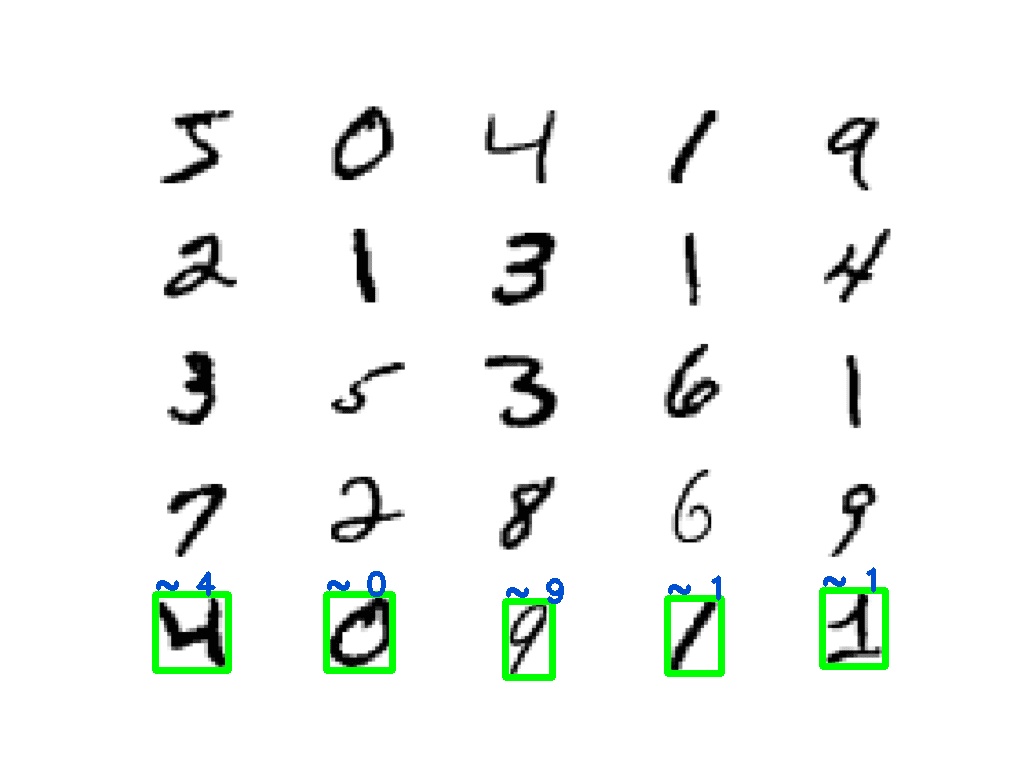 5 0 4 1 9
2 1 3 1 4
3 5 3 6 1
7 2 8 6 9
~ 4 ~ 0 ~ 9 ~ 1 ~ 1
4 0 9 1 1